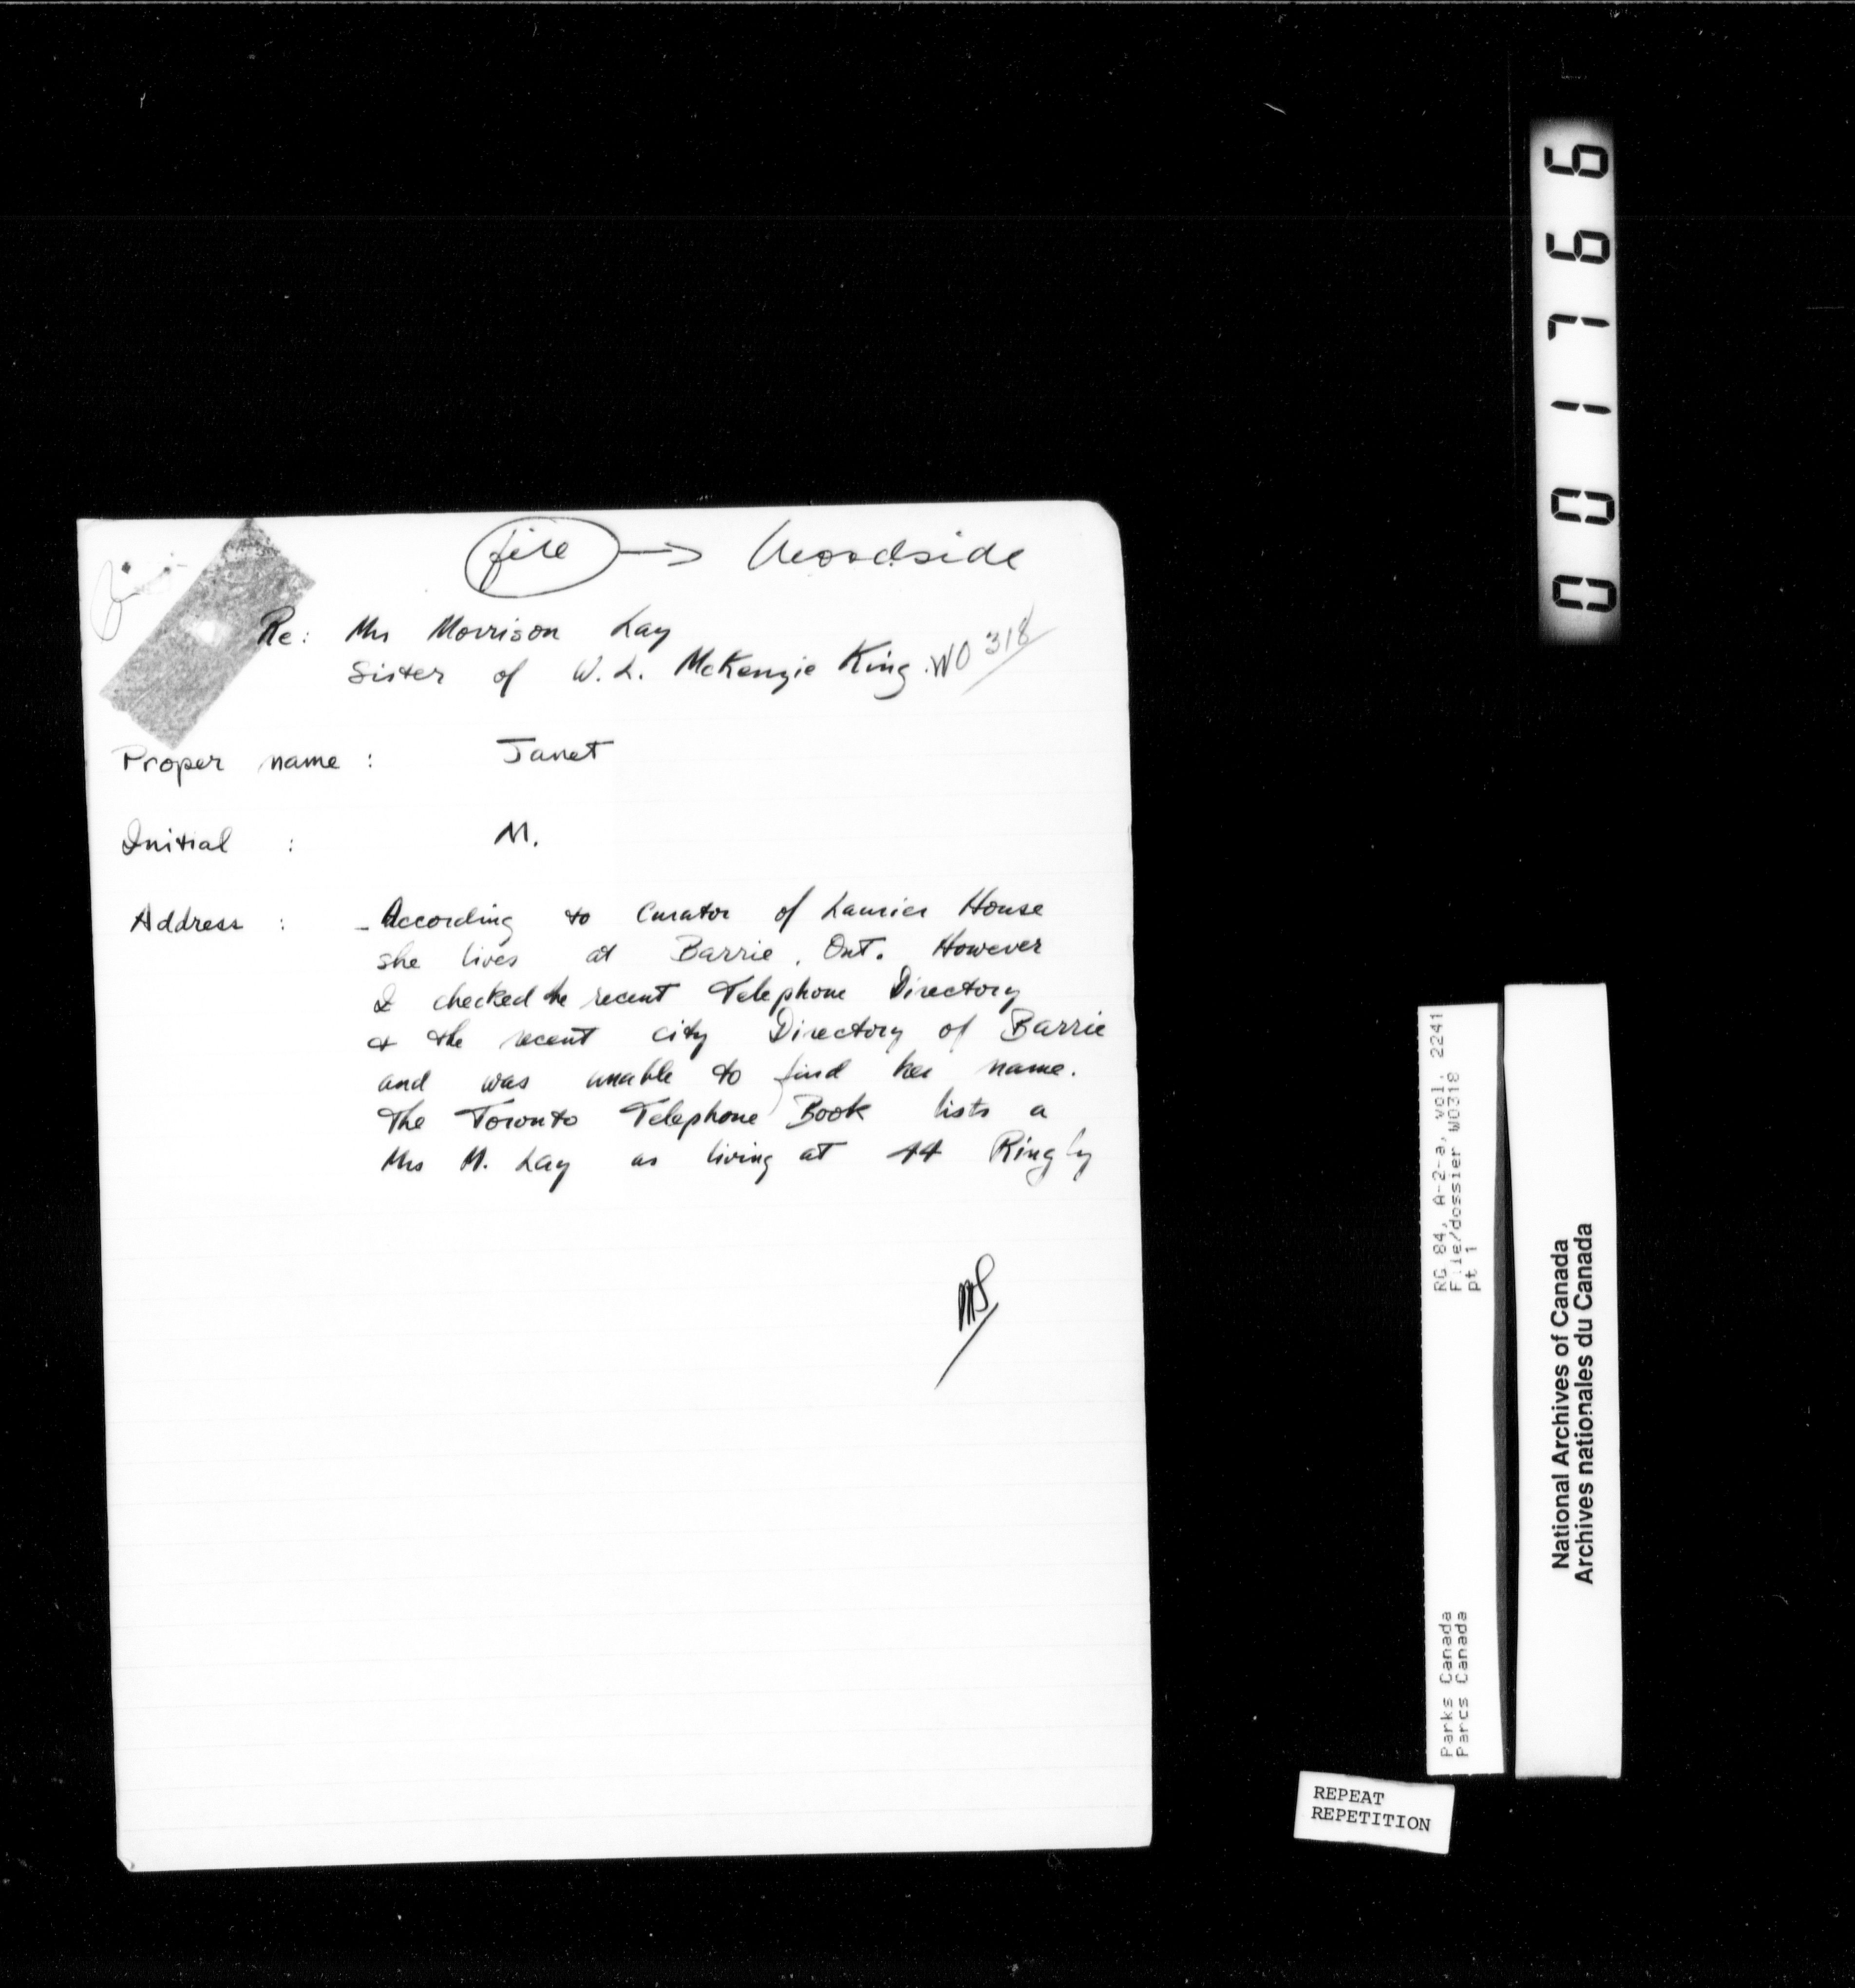 file → Woodside
Re: Mrs Morrison Lay
Sister of W. L. McKenzie King. WO 318
Proper name : Janet
Initial : M.
Address : - According to Curator of Laurier House
she lives at Barrie, Ont. However
I checked the recent Telephone Directory
& the recent city Directory of Barrie
and was unable to find her name.
The Toronto Telephone Book lists a
Mrs M. Lay as living at 44 Ringly
MS
001766
RG 84, A-2-a, vol. 2241
File/dossier WO318
pt 1
Parks Canada
Parcs Canada
National Archives of Canada
Archives nationales du Canada
REPEAT
REPETITION